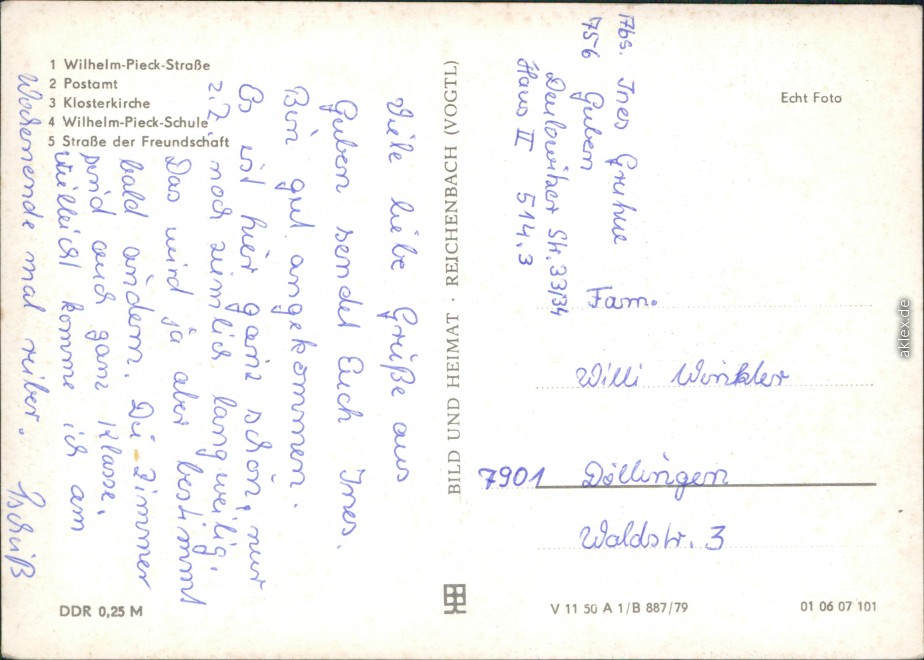 1 Wilhelm-Pieck-Straße
2 Postamt
3 Klosterkirche
4 Wilhelm-Pieck-Schule
5 Straße der Freundschaft
Viele liebe Grüße aus
Guben sendet Euch Ines.
Bin gut angekommen.
Es ist hier ganz schön, nur
z.Z. noch ziemlich langweilig.
Das wird ja aber bestimmt
bald ändern. Die Zimmer
sind auch ganz Klasse.
Vielleicht komme ich am
Wochenende mal rüber.
Tschüß
BILD UND HEIMAT · REICHENBACH (VOGTL)
Echt Foto
Abs. Ines
756 Guben
Str. 33/34
Haus II 514.3
Fam.
Willi Winkler
7901 Döllingen
Waldstr. 3
DDR 0,25 M
V 11 50 A 1/B 887/79
01 06 07 101
aklex.de